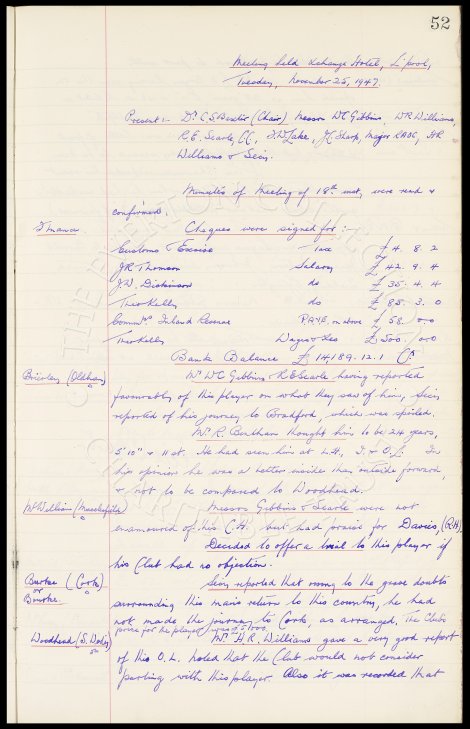 52
Meeting held Exchange Hotel, L'pool,
Tuesday, November 25, 1947.
Present:- Dr C.S. Baxter (Chair) Messrs W.C. Gibbins, W.R. Williams,
R.E. Searle, C.C., T.W. Lake, J.C. Sharp, Major RADC, H.R.
Williams & Secy.
Minutes of Meeting of 18th inst, were read &
confirmed.
Finance Cheques were signed for:-
Customs & Excise Tax £4. 8. 2
J.R. Thomson Salary £42. 9. 4
J.W. Dickinson do £35. 4. 4
Theo Kelly do £85. 3. 0
Commrs Inland Revenue P.A.Y.E. on above £58. 0.0
Theo Kelly Wages & Fees £500. 0.0
Bank Balance £14189.12.1 Cr.
Brierley (Oldham) Mr W.C. Gibbins & R.E. Searle having reported
favourably of this player on what they saw of him, Secy
reported of his journey to Bradford, which was spoiled.
Mr. R. Bentham thought him to be 24 years,
5'10" & 11 st. He had seen him at I.R., I. & O.L. In
his opinion he was a better inside than outside forward,
& not to be compared to Woodhead.
McWilliam (Macclesfield) Messrs Gibbins & Searle were not
enamoured of his C.H. but had praise for Davies, (R.H.)
Decided to offer a trial to this player if
his Club had no objection.
Burke (Cork) Secy reported that owing to the grave doubts
or
Bourke surrounding this mans return to this country, he had
not made the journey to Cork, as arranged. The Clubs
price for the player was £5,000.
Woodhead (S. Dist) Mr. H.R. Williams gave a very good report
of this O.L. Noted that the Club would not consider
parting with this player. Also it was recorded that